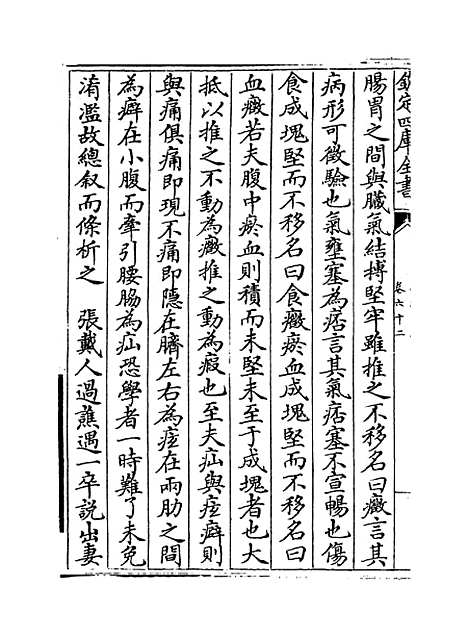 欽定四庫全書
卷六十二
腸胃之間與臟氣結搏堅牢雖推之不移名曰癥言其
病形可徵驗也氣壅塞為痞言其氣痞塞不宣暢也傷
食成塊堅而不移名曰食癥瘀血成塊堅而不移名曰
血癥若夫腹中瘀血則積而未堅未至于成塊者也大
抵以推之不動為癥推之動為瘕也至夫疝與痃癖則
與痛俱痛即現不痛即隱在臍左右為痃在兩肋之間
為癖在小腹而牽引腰脇為疝恐學者一時難了未免
淆濫故總叙而條析之　張戴人過譙遇一卒說出妻